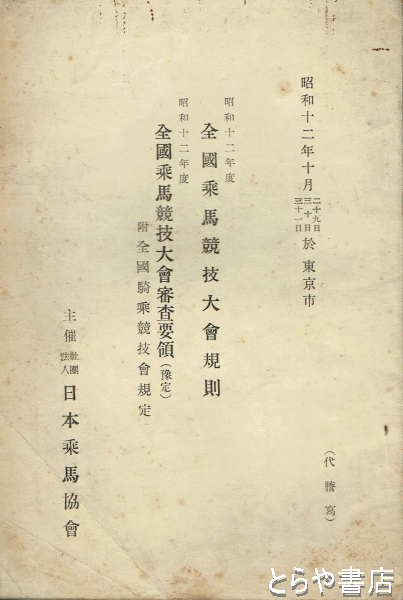 昭和十二年十月二十九日三十日三十一日於東京市
(代謄寫)
昭和十二年度
全國乘馬競技大會規則
昭和十二年度
全國乘馬競技大會審査要領(豫定)
附全國騎乘競技會規定
主催社團法人日本乘馬協會
とらや書店